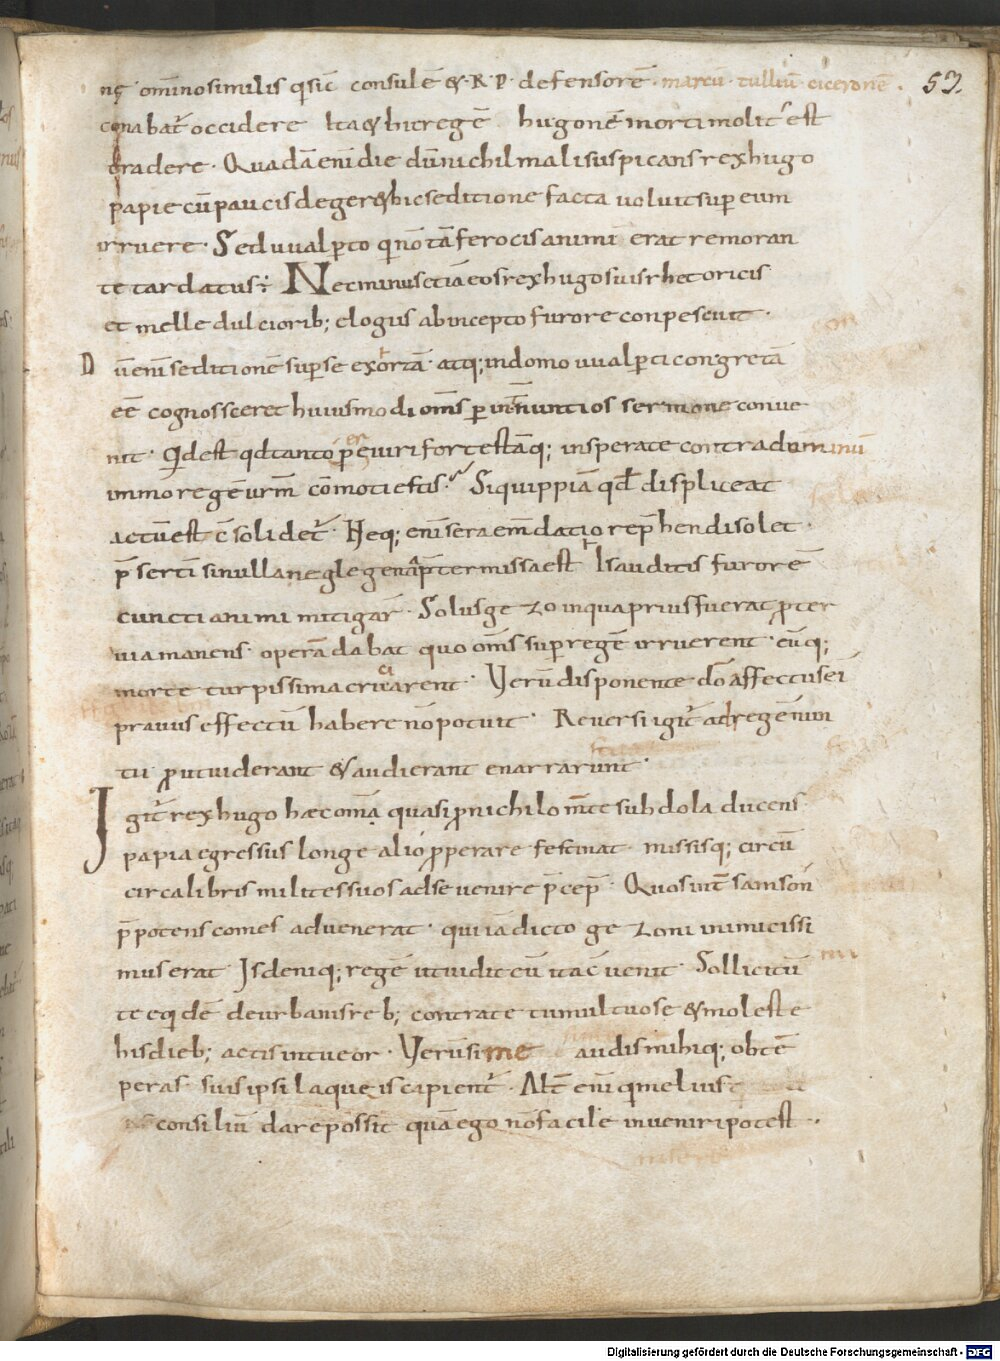 nę om̄ino similis q̄ sic̄ consulē & R P defensorē. marcū tulliū ciceronē. 53.
conabat͛ occidere Ita & hic regē hugonē morti molit͛ est
tradere. Quadā eni die dū nichil mali suspicans rex hugo
papie cū paucis deger& hic seditione facta voluit sup eum
irruere. Sed uualp̄to q̄ nō tā ferocis animi erat remoran
te tardatus; Nec minus etiā eos rex hugo suis rhetoricis
et melle dulciorib; elogiis ab incepto furore conpescuit.
Dū eni seditionē sup se exortā atq; in domo uualp̄ti congregatā
eē cognossceret huiusmodi om̄s p internuntios sermone conve
nit. Qd est qd tanto p̄ere uiri fortes tāq; insperate contra dominū
immo regē ur̄m cōmoti estis. Si quippiā qd displiceat
actū est c̄solidet͛. Neq; eni sera em̄datio rep̄hendi solet.
p̄sertī si nulla neglegentia p̄termissa est. Is auditis furorē
cuncti animi mitigar̄. Solus gezo in qua prius fuerat p̄ter
uia manens operā dabat quo om̄s sup regē irruerent eūq;
morte turpissima cruciarent. Verū disponente dō affectus ei
pravus effectū habere nō potuit. Reversi igit͛ ad regē nun
tii p̱ut uiderant & audierant enarrarunt.
Igit͛ rex hugo hæc om̄ia quasi p̱ nichilo m̄te subdola ducens
papia egressus longe alio p̱perare festinat. missisq; circū
circa libris milites suos ad se venire p̄cep̄. Quos int̄ samson
p̄potens comes advenerat. qui iā dicto gezoni inimicissi
mus erat Isdeniq; regē ut uidit eū ita c̄uenit. Sollicitū
te eqidē de urbanis reb; contra te tumultuose & moleste
his dieb; actis intueor. Verū si me audis mihiq; obtē
peras suis ipsi laqueis capient͛. Alt̄ eni q̄ melius
consiliū dare possit quā ego nō facile inveniri potest.
Digitalisierung gefördert durch die Deutsche Forschungsgemeinschaft - DFG